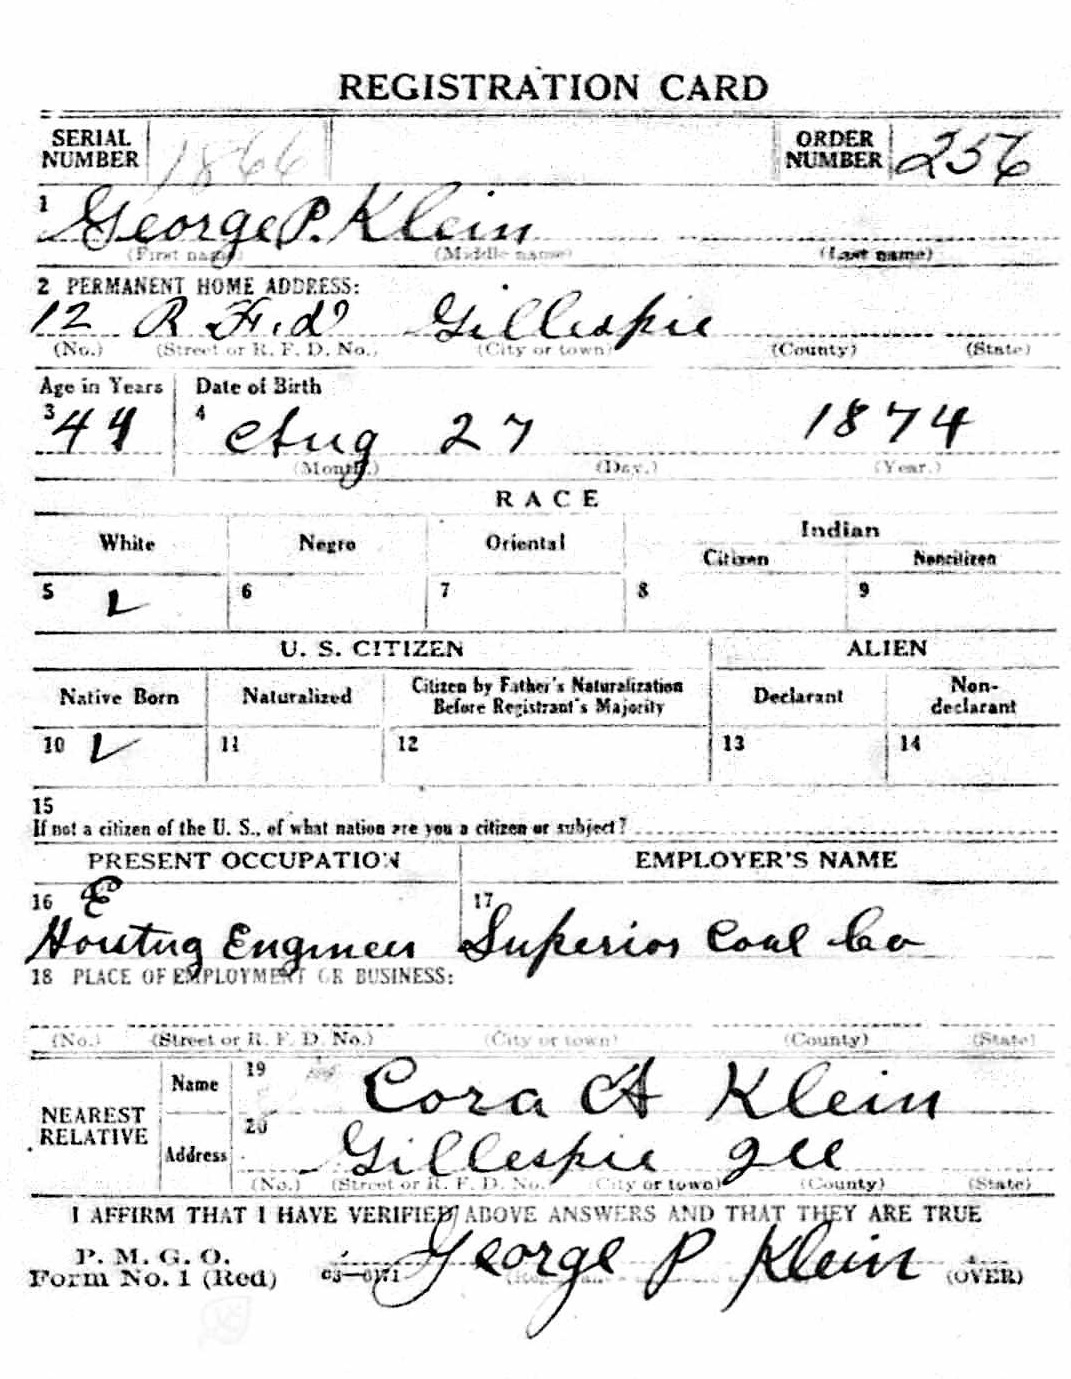 REGISTRATION CARD
SERIAL NUMBER 1866 ORDER NUMBER 256
1 George P. Klein
(First name) (Middle name) (Last name)
2 PERMANENT HOME ADDRESS:
12 R F. d Gillespie
(No.) (Street or R. F. D. No.) (City or town) (County) (State)
Age in Years Date of Birth
3 44 4 Aug 27 1874
(Month.) (Day.) (Year.)
RACE
White Negro Oriental Indian
Citizen Noncitizen
5 6 7 8 9
U. S. CITIZEN ALIEN
Native Born Naturalized Citizen by Father's Naturalization Before Registrant's Majority Declarant Non-declarant
10 11 12 13 14
15
If not a citizen of the U. S., of what nation are you a citizen or subject?
PRESENT OCCUPATION EMPLOYER'S NAME
16 E 17
Engineer Superior Coal Co
18 PLACE OF EMPLOYMENT OR BUSINESS:
(No.) (Street or R. F. D. No.) (City or town) (County) (State)
NEAREST RELATIVE
Name 19 Cora A Klein
Address 20 Gillespie Ill
(No.) (Street or R. F. D. No.) (City or town) (County) (State)
I AFFIRM THAT I HAVE VERIFIED ABOVE ANSWERS AND THAT THEY ARE TRUE
P. M. G. O.
Form No. 1 (Red) 03—6171 George P Klein (OVER)